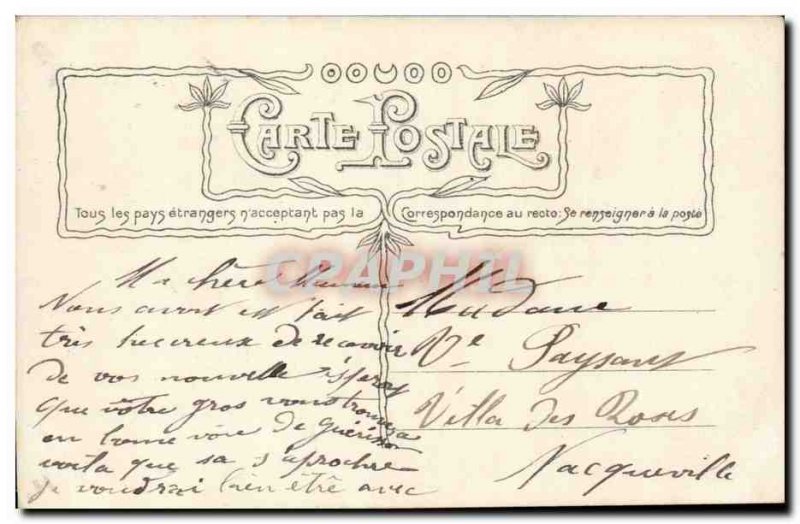 CARTE POSTALE
Tous les pays étrangers n'acceptant pas la Correspondance au recto: Se renseigner à la poste
CRAPHIL
Ma chère Maman
Nous avons été fait
très heureux de recevoir
de vos nouvelle
que votre gros
en bonne voie de guérison
voila que sa s'aproche
je voudrai bien être avec
Madame
Ve Paysant
Villa des Roses
Nacqueville